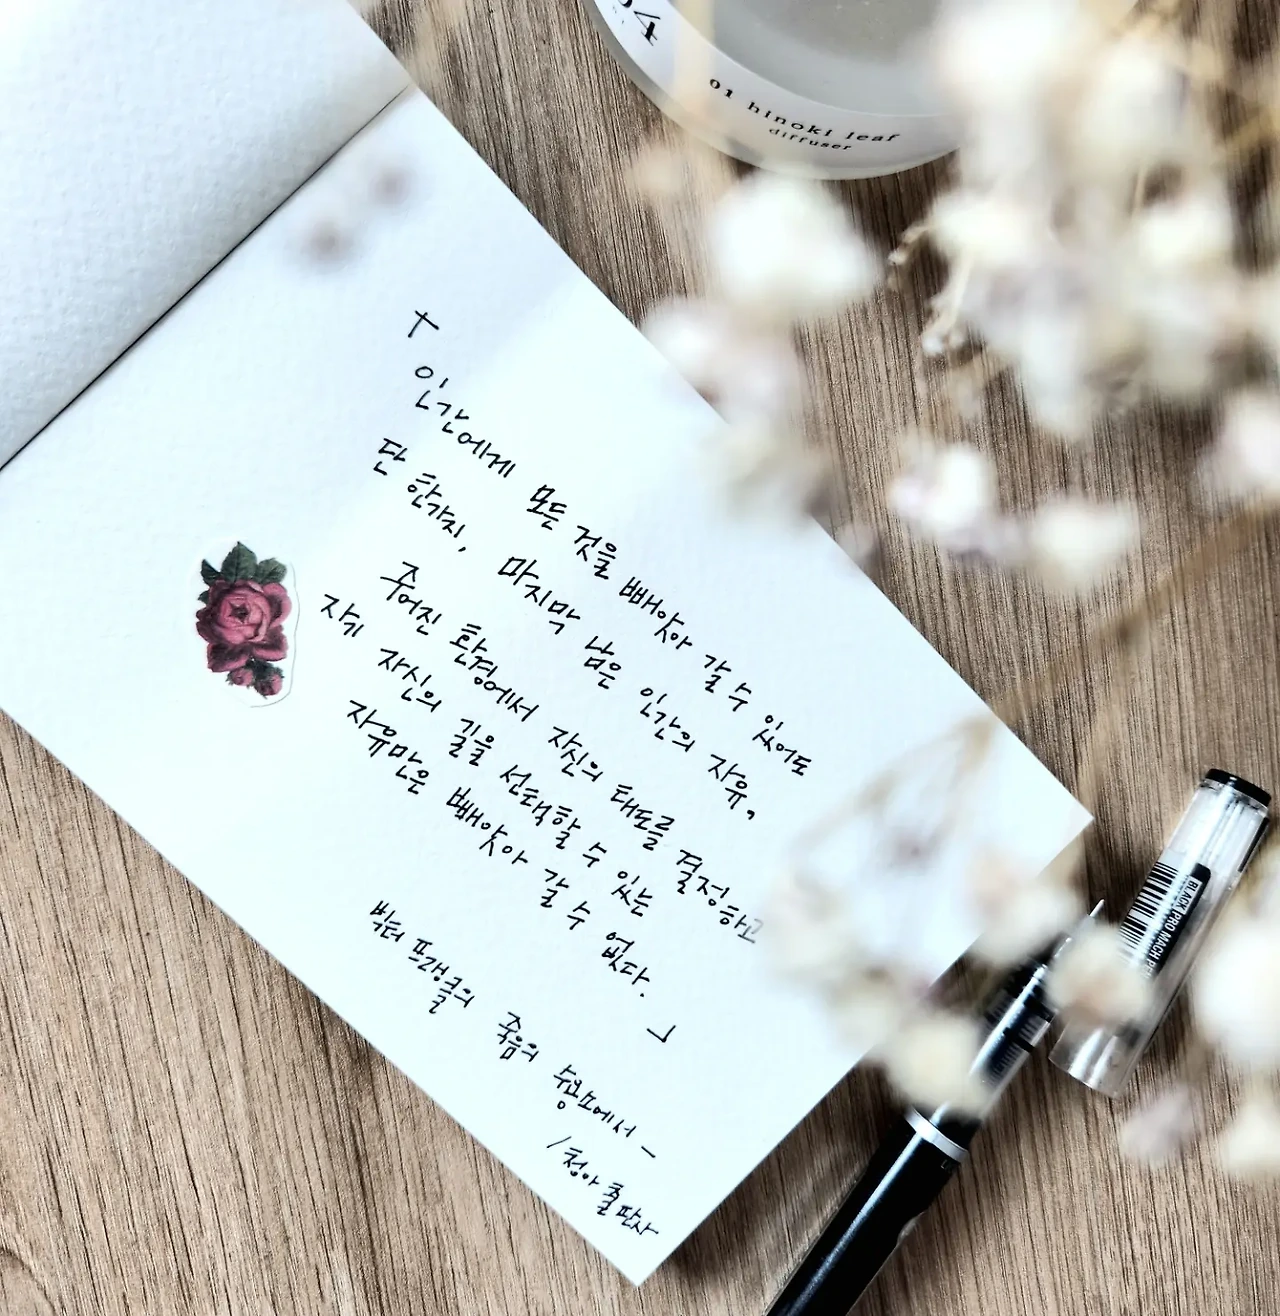 04
01 hinoki leaf
diffuser
「
인간에게 모든 것을 빼앗아 갈 수 있어도
단 한가지, 마지막 남은 인간의 자유,
주어진 환경에서 자신의 태도를 결정하고
자기 자신의 길을 선택할 수 있는
자유만은 빼앗아 갈 수 없다.
」
빅터 프랭클의 죽음의 수용소에서 -
/ 청아출판사
BLACK PRO MACH